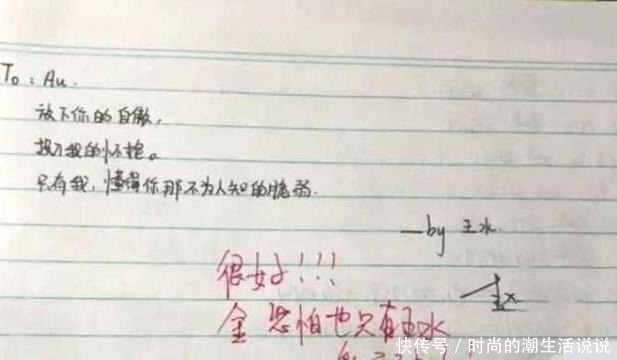 To：Au.
放下你的自傲，
投入我的怀抱。
只有我，懂得你那不为人知的脆弱.
—by 王水.
很好！！！
金 恐怕也只有王水
快传号／时尚的潮生活说说